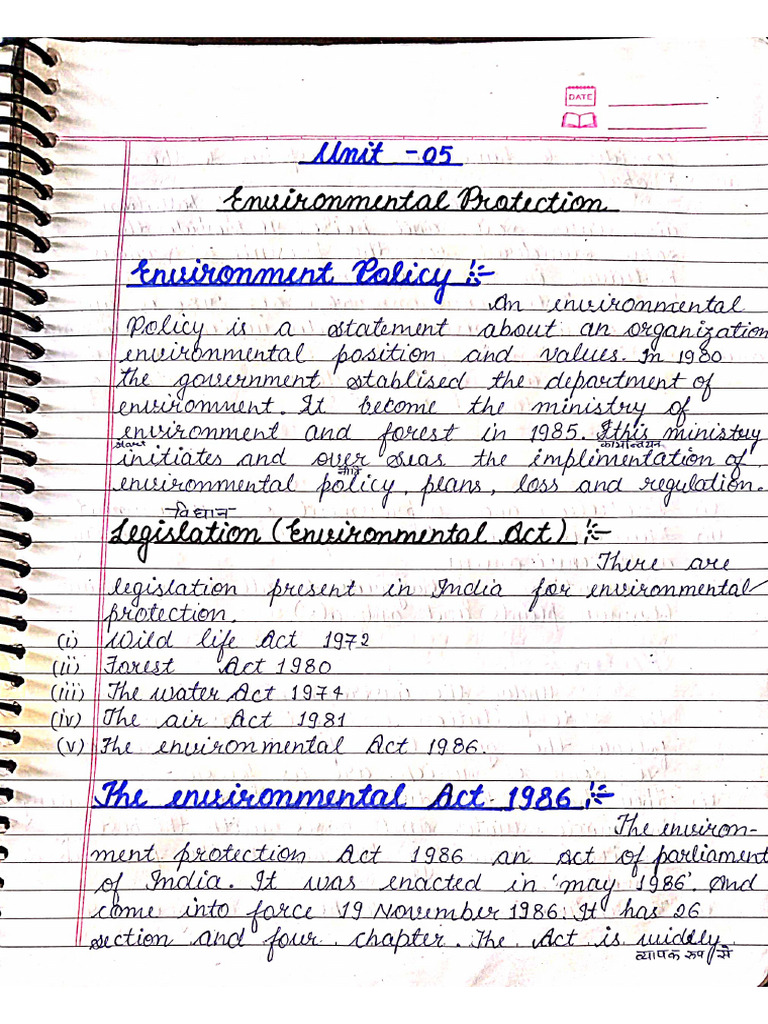 DATE
Unit - 05
Environmental Protection
Environment Policy :-
An environmental
Policy is a statement about an organization
environmental position and values. In 1980
the government stablised the department of
enviromnent. It become the ministry of
environment and forest in 1985. This ministry
कार्यान्वयन
initiates and over seas the implimentation of
नीति
environmental policy, plans, loss and regulation.
विधान
Legislation (Environmental Act) :-
There are
legislation present in India for environmental
protection.
(i) Wild life Act 1972
(ii) Forest Act 1980
(iii) The water Act 1974
(iv) The air Act 1981
(v) The environmental Act 1986.
The environmental Act 1986 :-
The environ-
ment protection Act 1986 an act of parliament
of India. It was enacted in 'may 1986'. And
come into force 19 November 1986. It has 26
section and four chapter. The Act is widely
व्यापक रुप से